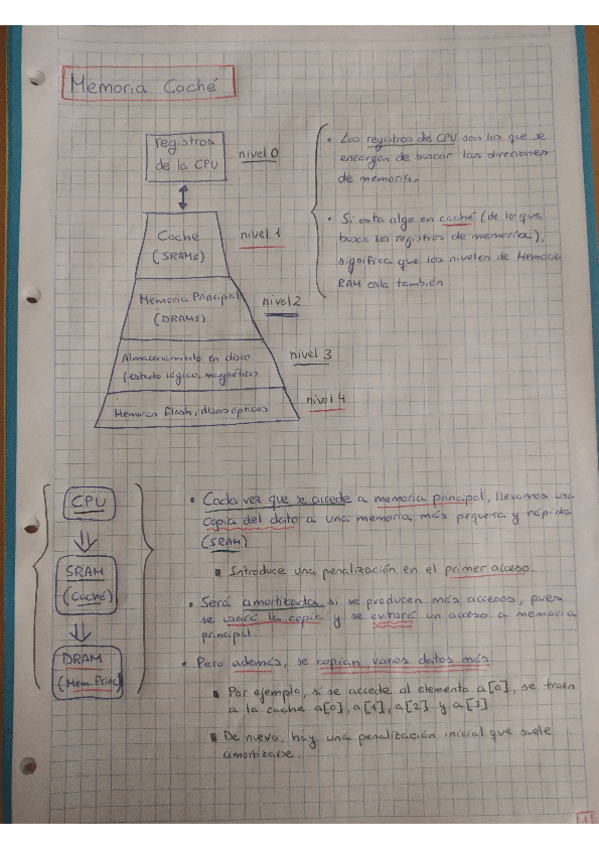 Memoria Caché
registros
de la CPU
nivel 0
Caché
(SRAMs)
nivel 1
Memoria Principal
(DRAMs)
nivel 2
Almacenamiento en disco
(estado lógico, magnético)
nivel 3
Memorias flash, discos ópticos
nivel 4
• Los registros de CPU son los que se
encargan de buscar las direciones
de memoria.
• Si esta algo en caché (de lo que
busca los registros de memoria),
significa que los niveles de Memoria
RAM esta también
CPU
SRAM
(Caché)
DRAM
(Mem Princ)
• Cada vez que se accede a memoria principal, llevamos una
copia del dato a una memoria más pequeña y rápida
(SRAM)
▪ Introduce una penalización en el primer acceso.
• Será amortizados si se producen más accesos, pues
se usará la copia y se evitará un acceso a memoria
principal.
• Pero además, se copian varios datos más.
▪ Por ejemplo, si se accede al elemento a[0], se traen
a la cache a[0], a[1], a[2] y a[3]
▪ De nuevo, hay una penalización inicial que suele
amortizarse.
1